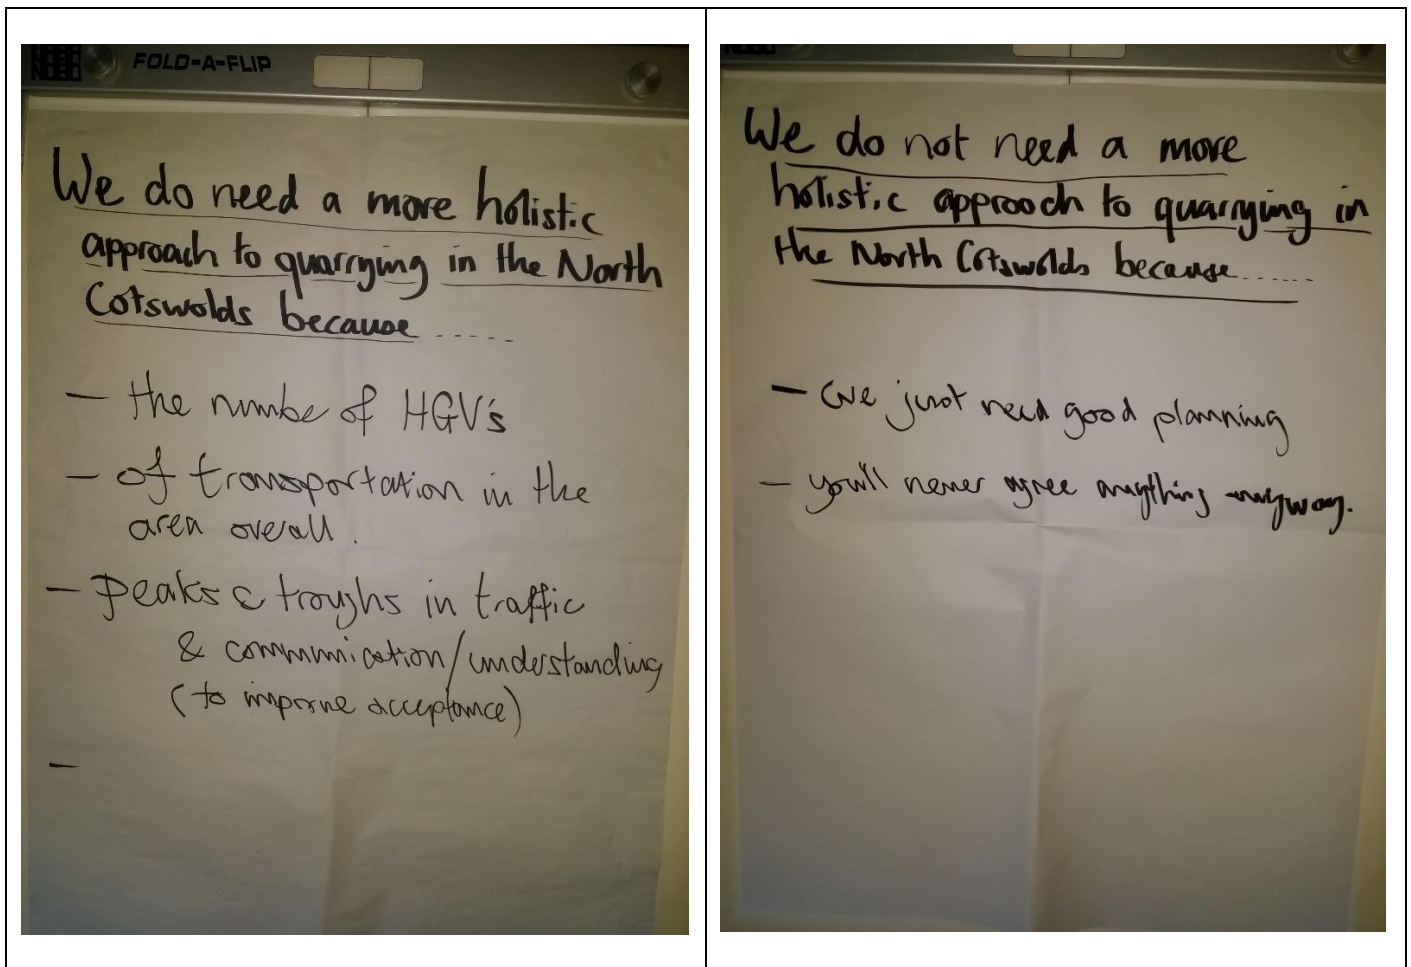 FOLD-A-FLIP
We do need a more holistic
approach to quarrying in the North
Cotswolds because .....
- the number of HGV's
- of transportation in the
area overall.
- Peaks & troughs in traffic
& communication/understanding
(to improve acceptance)
-
We do not need a more
holistic approach to quarrying in
the North Cotswolds because ......
- we just need good planning
- you'll never agree anything anyway.